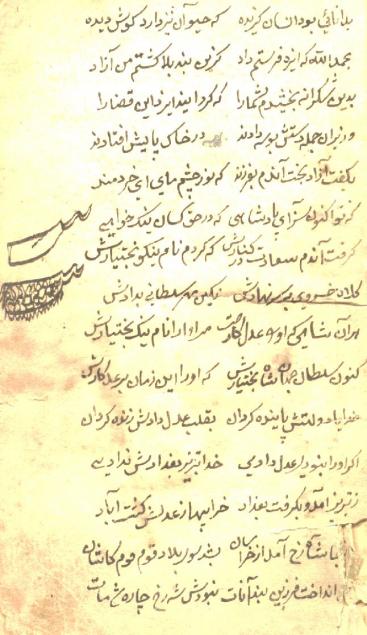 بدانائی بود انسان گزیده که حیوان نیز دارد گوش و دیده
بحمدالله که ایزد فرستم داد کزین بند بلا گشتم من آزاد
بدین شکرانه بخشیدم شما را که کرد ایند ایراد این قضا را
وزیران جمله دستش بوسه دادند در خاک پایش افتادند
بگفت آزاد بخت آندم بفرزند که نور چشم مایی ای خردمند
که تو اکنون سزای پادشاهی که در حق کسان نیک خواهی
گرفت آندم سعادت در کنارش که کردم نام نیکو بختیارش
کلاه خسروی بر سر نهادش نگین مهر سلطانی بدادش
هر آن شاهی که او عدل کارست مر او را نام نیک بختیارش
کنون سلطان جهان شاه بختیارش که او را این زمان بر عدل کارش
خدایا دولتش پاینده گردان بقلب عدل دادش زنده گردان
اگر او را نبودی عدل دادی خدا تبریز بغدادش ندادی
ز تبریز آمد و بگرفت بغداد خرابیها ز عدلش گشت آباد
باشاه رخ آمد از خراسان بلاد قوم قوم
انداخت فرزین نبودش شه رخ چاره شه مات